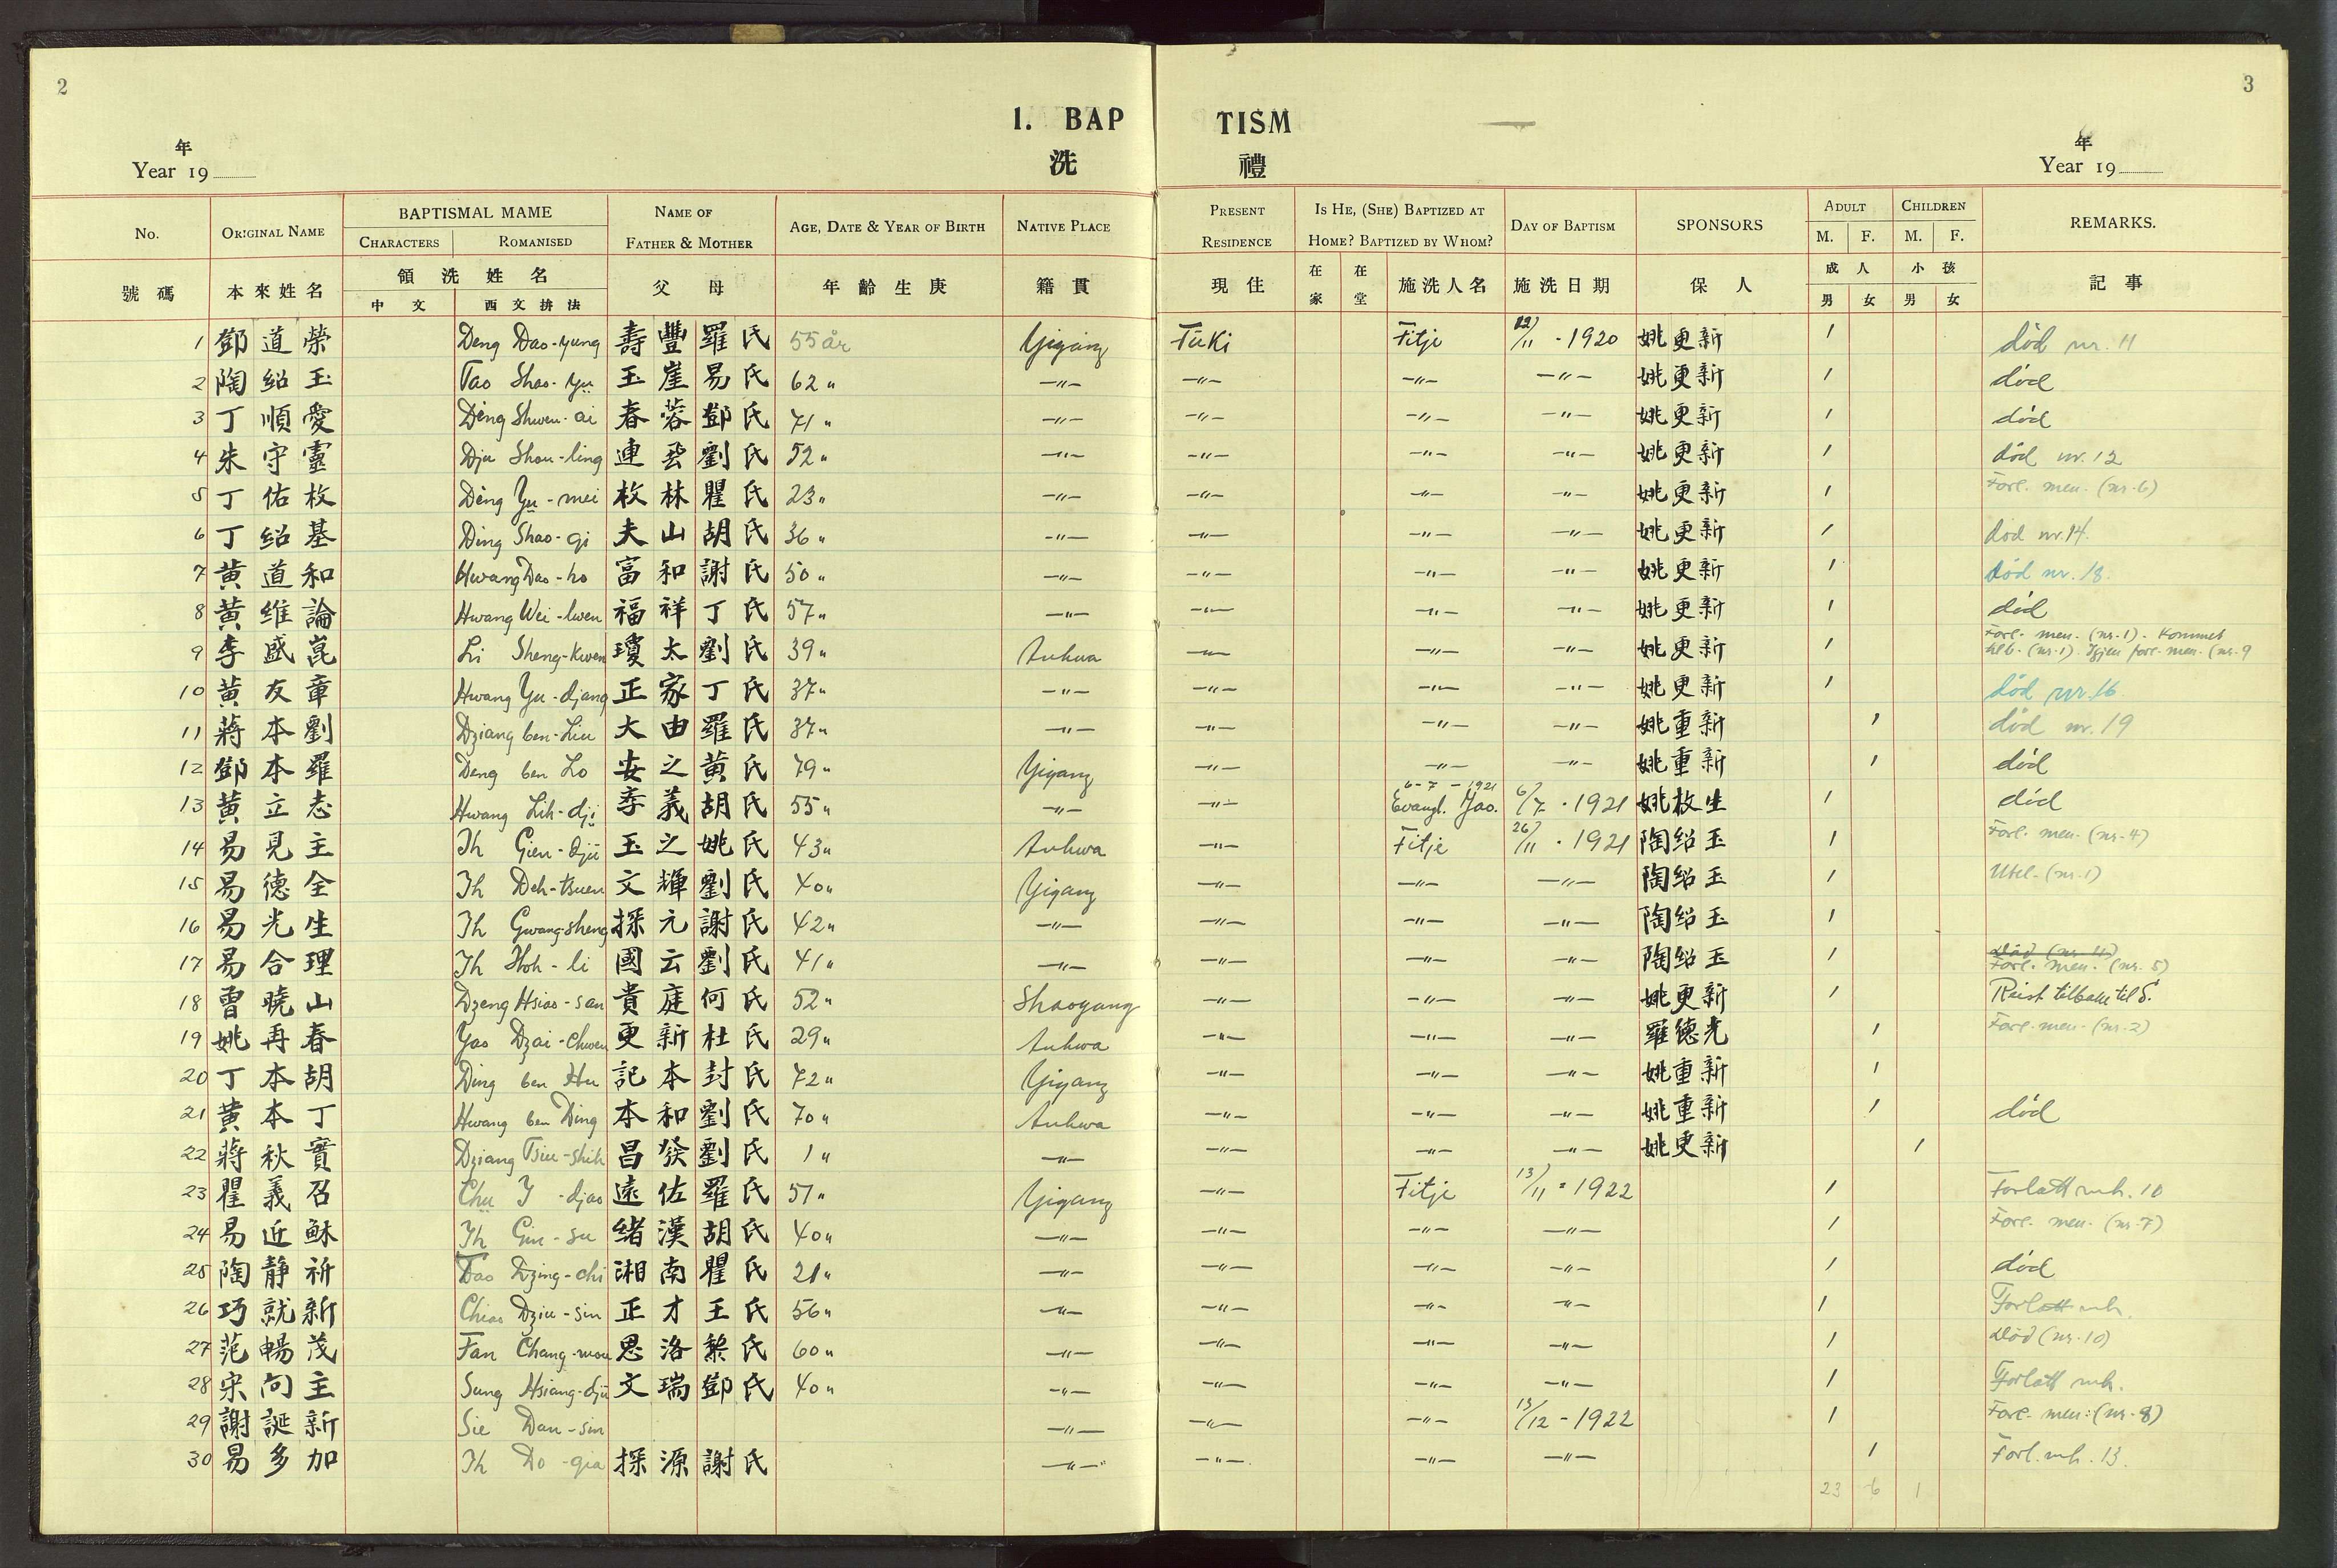 2
3
1. BAP TISM
洗 禮
年
Year 19
年
Year 19
No. ORIGINAL NAME BAPTISMAL MAME NAME OF FATHER & MOTHER AGE, DATE & YEAR OF BIRTH NATIVE PLACE PRESENT RESIDENCE IS HE, (SHE) BAPTIZED AT HOME? BAPTIZED BY WHOM? DAY OF BAPTISM SPONSORS ADULT CHILDREN REMARKS.
CHARACTERS ROMANISED M. F. M. F.
號碼 本來姓名 領洗姓名 父母 年齡生庚 籍貫 現住 在家 在堂 施洗人名 施洗日期 保人 成人 小孩 記事
中文 西文拚法 男 女 男 女
1 鄧道榮 Deng Dao-yung 壽豐羅氏 55 år Yiyang Tuki Fitje 12/11 · 1920 姚更新 1 død nr. 11
2 陶紹玉 Tao Shao-yu 玉崖易氏 62 " —"— —"— —"— —"— 姚更新 1 død
3 丁順愛 Ding Shwen-ai 春蓉鄧氏 71 " —"— —"— —"— —"— 姚更新 1 død
4 朱守靈 Dju Shou-ling 連登劉氏 52 " —"— —"— —"— —"— 姚更新 1 død nr. 12
5 丁佑枚 Ding Yu-mei 枚林瞿氏 23 " —"— —"— —"— —"— 姚更新 1 Forl. men. (nr. 6)
6 丁紹基 Ding Shao-gi 夫山胡氏 36 " —"— —"— —"— —"— 姚更新 1 død nr. 14.
7 黃道和 Hwang Dao-ho 富和謝氏 50 " —"— —"— —"— —"— 姚更新 1 død nr. 18.
8 黃维論 Hwang Wei-lwen 福祥丁氏 57 " —"— —"— —"— —"— 姚更新 1 død
9 李盛崑 Li Sheng-kwen 瓊太劉氏 39 " Anhwa —"— —"— —"— 姚更新 1 Forl. men. (nr. 1). Kommet
tilb. (nr. 1). Igjen forl. men. (nr. 9
10 黃友章 Hwang Yu-djang 正家丁氏 37 " —"— —"— —"— —"— 姚更新 1 død nr. 16
11 蔣本劉 Dziang ben Liu 大由羅氏 37 " —"— —"— —"— —"— 姚重新 1 død nr. 19
12 鄧本羅 Deng ben Lo 安之黃氏 79 " Yiyang —"— —"— —"— 姚重新 1 død
13 黃立志 Hwang Lih-dji 季義胡氏 55 " —"— —"— 6-7-1921 Evangl. Yao. 6/7 · 1921 姚枚生 1 død
14 易見主 Ih Gien-djü 玉之姚氏 43 " Anhwa —"— Fitje 26/11 · 1921 陶紹玉 1 Forl. men. (nr. 4)
15 易德全 Ih Deh-tsuen 文輝劉氏 40 " Yiyang —"— —"— —"— 陶紹玉 1 Utel. (nr. 1)
16 易光生 Ih Gwang-sheng 探元謝氏 42 " —"— —"— —"— —"— 陶紹玉 1
17 易合理 Ih Hoh-li 國云劉氏 41 " —"— —"— —"— —"— 陶紹玉 1 Død (nr. 4)
Forl. men. (nr. 5)
18 曾曉山 Dzeng Hsiao-san 貴庭何氏 52 " Shaoyang —"— —"— —"— 姚更新 1 Reist tilbake til S.
19 姚再春 Yao Dzai-chwen 更新杜氏 29 " Anhwa —"— —"— —"— 羅德光 1 Forl. men. (nr. 2)
20 丁本胡 Ding ben Hu 記本封氏 72 " Yiyang —"— —"— —"— 姚重新 1
21 黃本丁 Hwang ben Ding 本和劉氏 70 " Anhwa —"— —"— —"— 姚重新 1 død
22 蔣秋實 Dziang Tsiu-shih 昌發劉氏 1 " —"— —"— —"— —"— 姚更新 1
23 瞿義召 Chu Y-djao 遠佐羅氏 51 " Yiyang —"— Fitje 13/11 = 1922 1 Forlatt mh. 10
24 易近穌 Ih Gin-su 緒漢胡氏 40 " —"— —"— —"— —"— 1 Forl. men. (nr. 7)
25 陶静祈 Tao Dzing-chi 湘南瞿氏 21 " —"— —"— —"— —"— 1 død
26 巧就新 Chiao Dziu-sin 正才王氏 56 " —"— —"— —"— —"— 1 Forlatt mh.
27 范暢茂 Fan Chang-mou 思洛黎氏 60 " —"— —"— —"— —"— 1 Død (nr. 10)
28 宋向主 Sung Hsiang-djü 文瑞鄧氏 40 " —"— —"— —"— —"— 1 Forlatt mh.
29 謝誕新 Sie Dan-sin —"— —"— —"— 13/12 - 1922 1 Forl. men. (nr. 8)
30 易多加 Ih Do-gia 探源謝氏 —"— —"— —"— —"— 1 Forl. mh. 13.
23 6 1